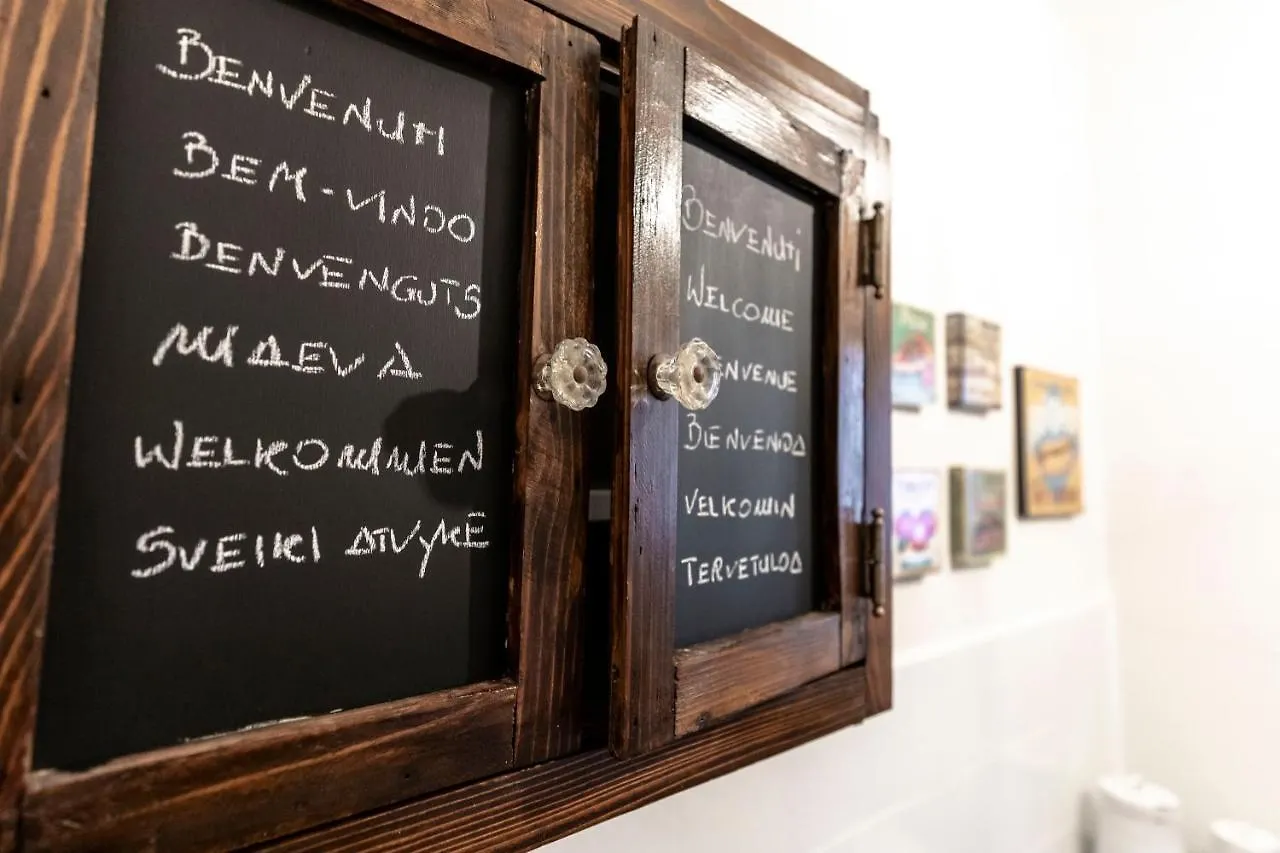 BENVENUTI
BEM-VINDO
BENVENGUTS
MIDEV A
WELKOMMEN
SVEIKI ATVYKE
BENVENUTI
WELCOME
ENVENUE
BIENVENIDA
VELKOMIN
TERVETULOA